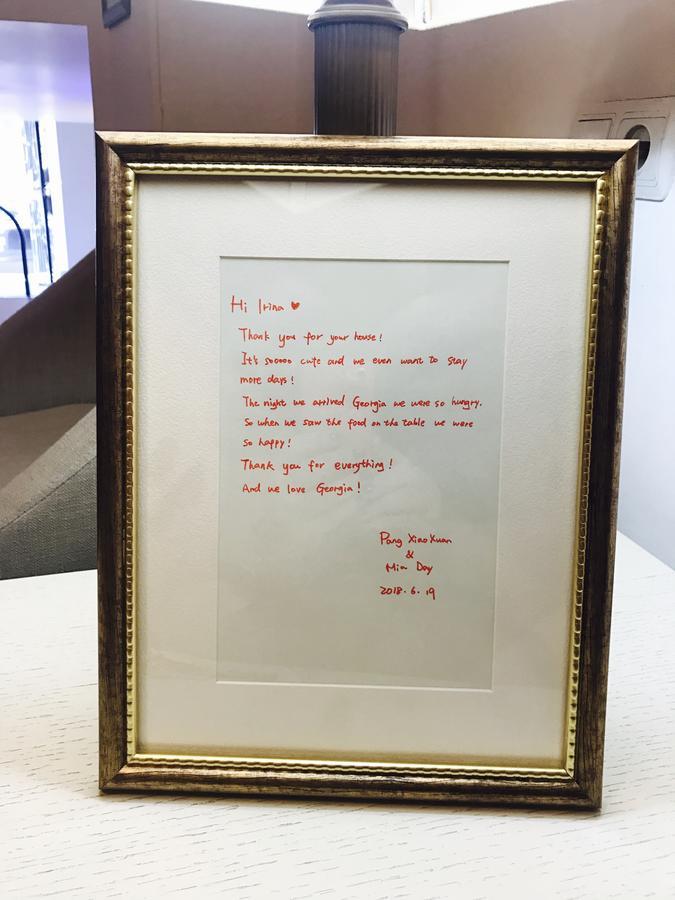 Hi Irina ♥
Thank you for your house!
It's soooo cute and we even want to stay
more days!
The night we arrived Georgia we were so hungry.
So when we saw the food on the table we were
so happy!
Thank you for everything!
And we love Georgia!
Pang XiaoXuan
&
Mia Day
2018.6.19